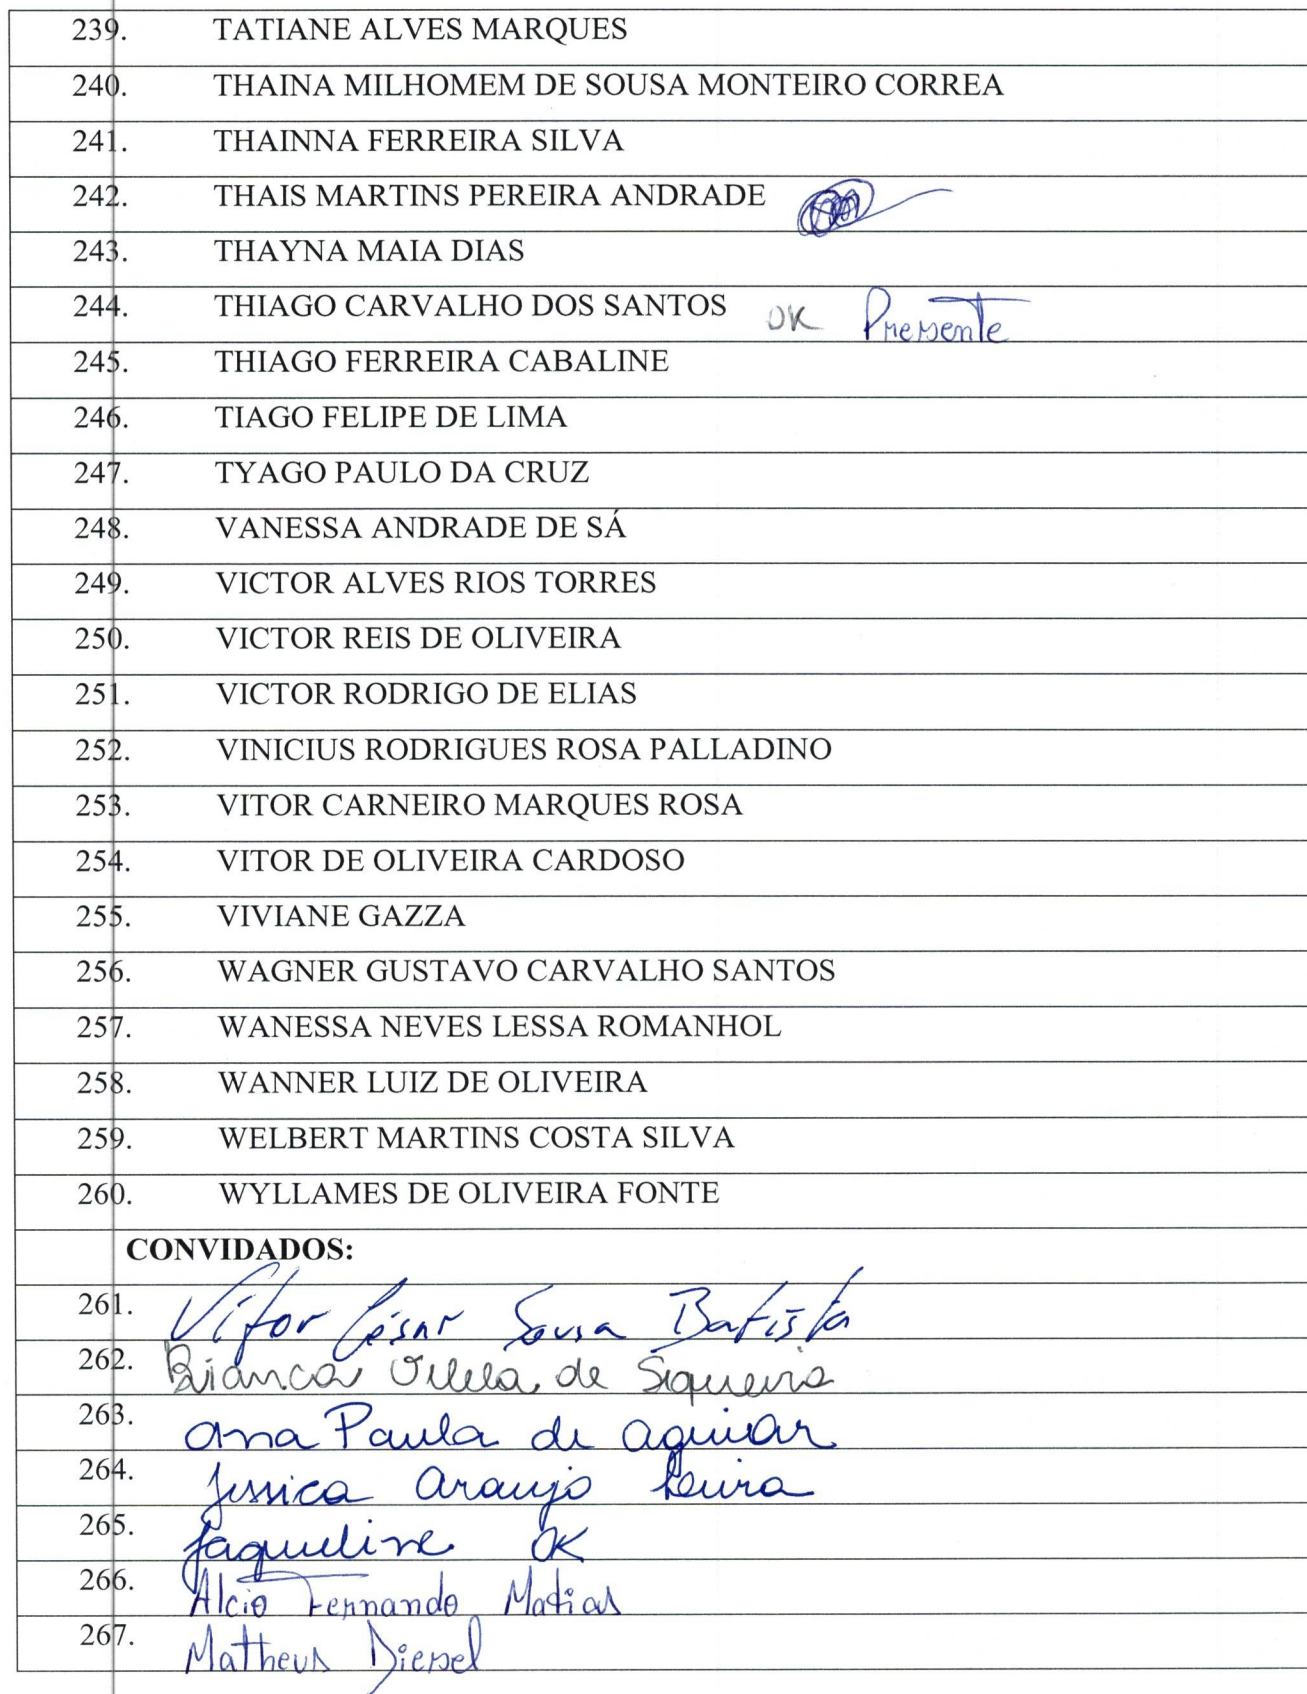 239. TATIANE ALVES MARQUES
240. THAINA MILHOMEM DE SOUSA MONTEIRO CORREA
241. THAINNA FERREIRA SILVA
242. THAIS MARTINS PEREIRA ANDRADE
243. THAYNA MAIA DIAS
244. THIAGO CARVALHO DOS SANTOS OK Presente
245. THIAGO FERREIRA CABALINE
246. TIAGO FELIPE DE LIMA
247. TYAGO PAULO DA CRUZ
248. VANESSA ANDRADE DE SÁ
249. VICTOR ALVES RIOS TORRES
250. VICTOR REIS DE OLIVEIRA
251. VICTOR RODRIGO DE ELIAS
252. VINICIUS RODRIGUES ROSA PALLADINO
253. VITOR CARNEIRO MARQUES ROSA
254. VITOR DE OLIVEIRA CARDOSO
255. VIVIANE GAZZA
256. WAGNER GUSTAVO CARVALHO SANTOS
257. WANESSA NEVES LESSA ROMANHOL
258. WANNER LUIZ DE OLIVEIRA
259. WELBERT MARTINS COSTA SILVA
260. WYLLAMES DE OLIVEIRA FONTE
CONVIDADOS:
261. Vítor César Sousa Batista
262. Bianca Vilela de Siqueira
263. Ana Paula de Aguiar
264. Jessica Araujo
265. Jaqueline OK
266. Alcio Fernando Matias
267. Matheus Diesel